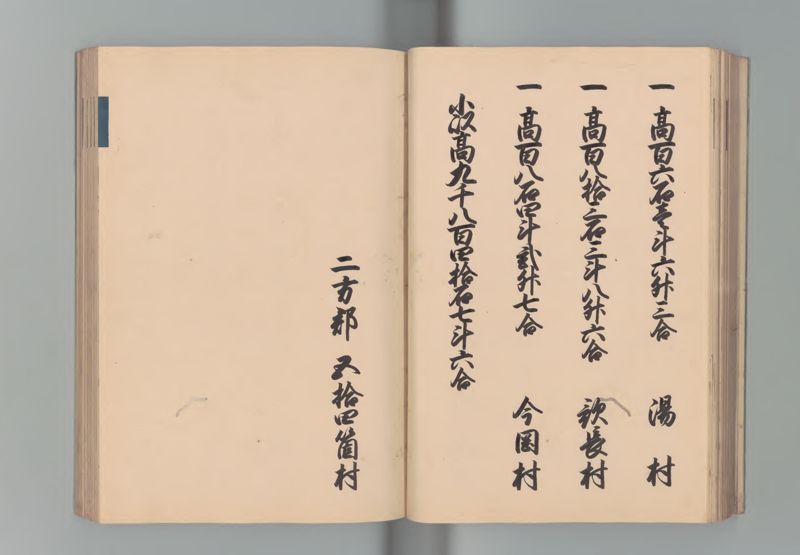 一 高百六石壱斗六升三合 湯村
一 高百八拾三石三斗八升六合 歌長村
一 高百八石四斗弐升七合 今岡村
小以高九千八百四拾石七斗六合
二方郡 五拾四箇村